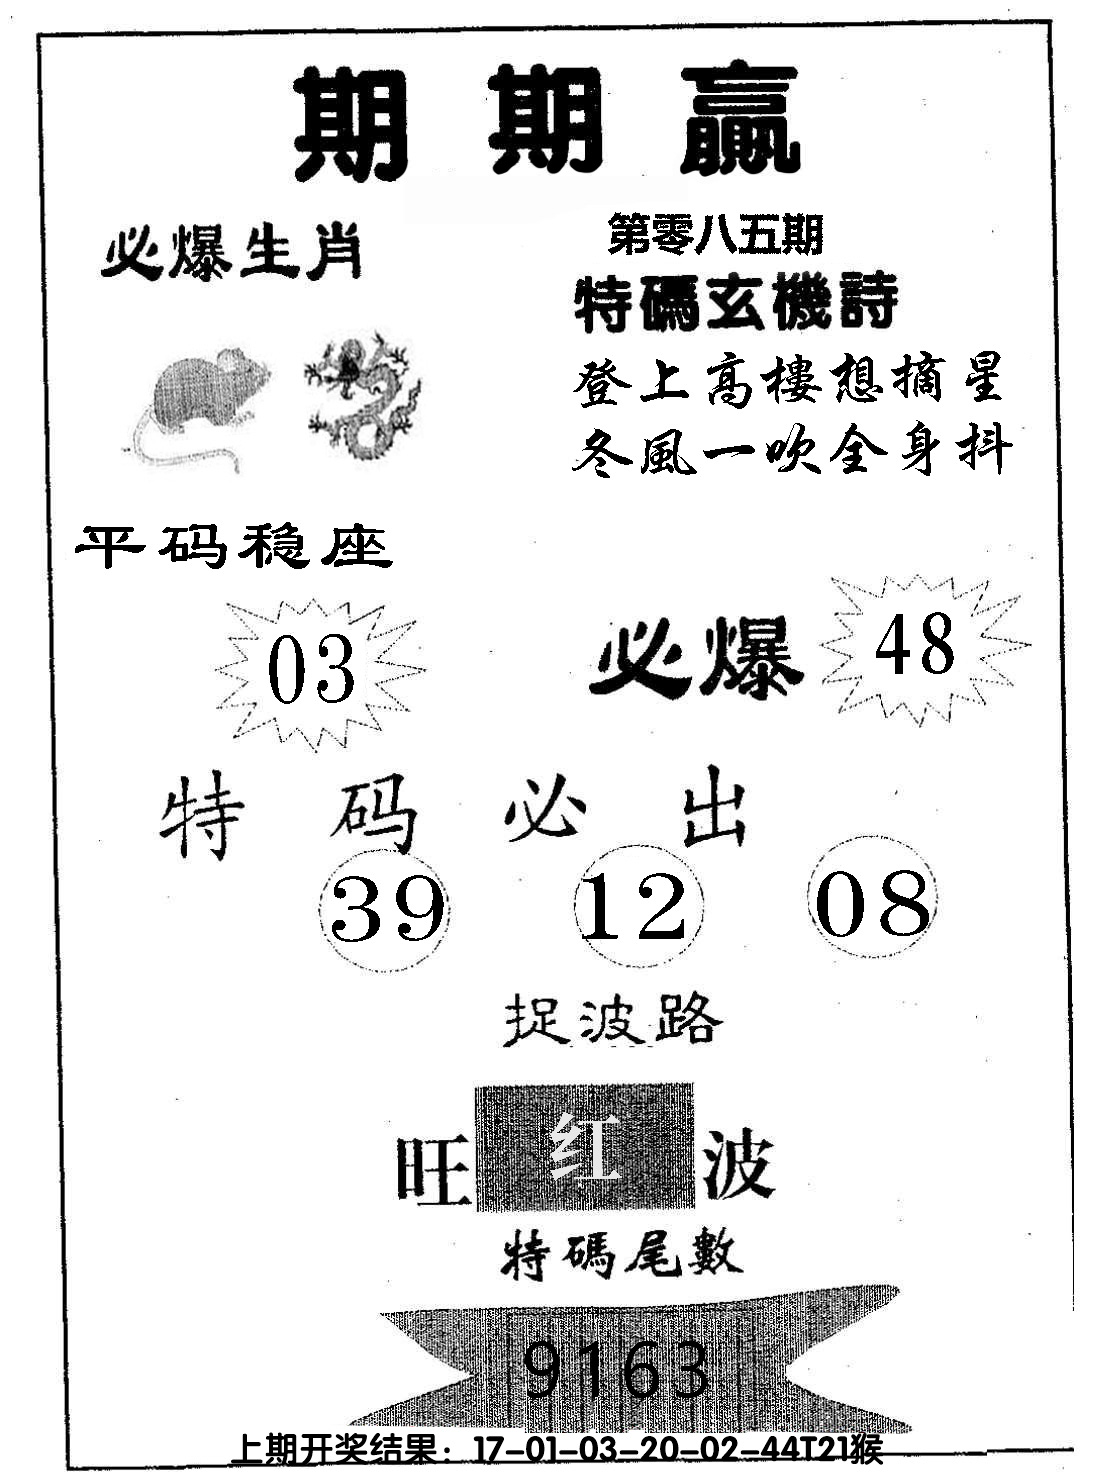 期期赢
必爆生肖
第零八五期
特碼玄機詩
登上高樓想摘星
冬風一吹全身抖
平码稳座
03
必爆
48
特码必出
39 12 08
捉波路
旺红波
特碼尾數
9163
上期开奖结果：17-01-03-20-02-44T21猴